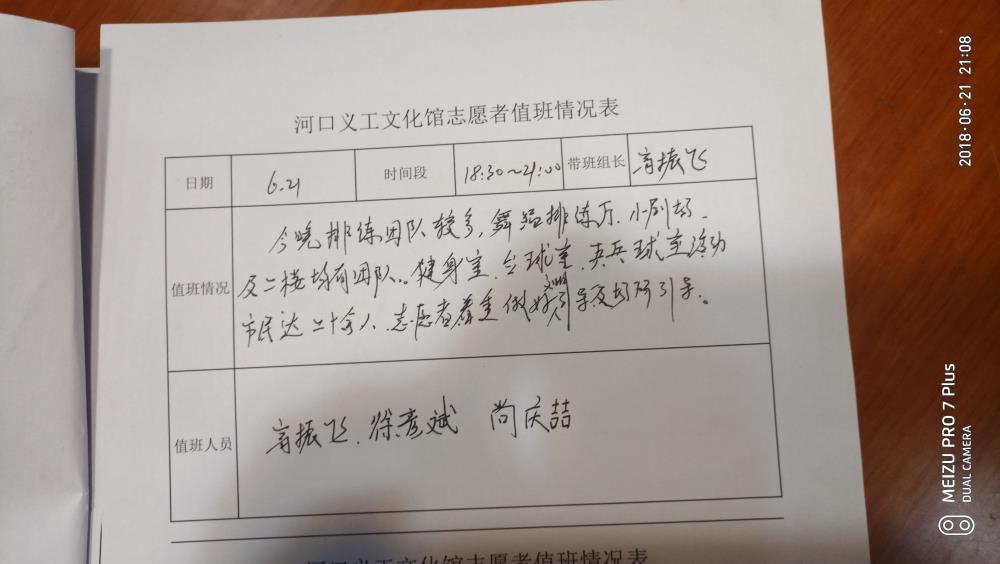 河口义工文化馆志愿者值班情况表
日期 6.21 时间段 18:30~21:00 带班组长 振飞
值班情况
今晚排练团队较多,舞蹈排练厅、小剧场、
及二楼均有团队。健身室、台球室、乒乓球室活动
市民达二十余人,志愿者着重做好文明引导及场所引导。
值班人员 振飞、徐彦斌 尚庆喆
河口义工文化馆志愿者值班情况表
2018·06·21 21:08
MEIZU PRO 7 Plus
DUAL CAMERA